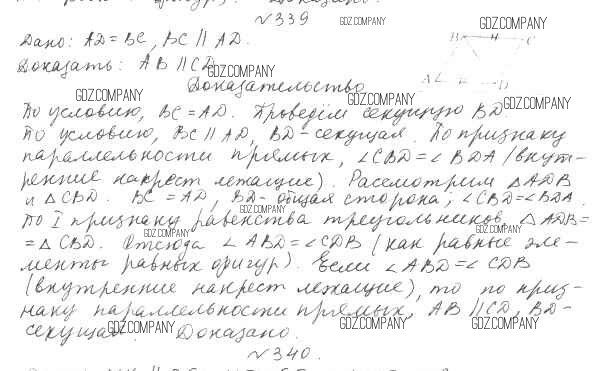 №339
Дано: AD = BC, BC || AD.
Доказать: AB || CD
Доказательство
По условию, BC = AD. Проведём секущую BD.
По условию, BC || AD, BD - секущая. По признаку
параллельности прямых, ∠CBD = ∠BDA (внут-
ренние накрест лежащие). Рассмотрим △ADB
и △CBD. BC = AD, BD - общая сторона, ∠CBD = ∠BDA.
По I признаку равенства треугольников, △ADB =
= △CBD. Отсюда ∠ABD = ∠CDB (как равные эле-
менты равных фигур). Если ∠ABD = ∠CDB
(внутренние накрест лежащие), то по приз-
наку параллельности прямых, AB || CD, BD -
секущая. Доказано.
№340.
B C
A D
GDZ.COMPANY
GDZ.COMPANY
GDZ.COMPANY
GDZ.COMPANY
GDZ.COMPANY
GDZ.COMPANY
GDZ.COMPANY
GDZ.COMPANY
GDZ.COMPANY
GDZ.COMPANY
GDZ.COMPANY
GDZ.COMPANY